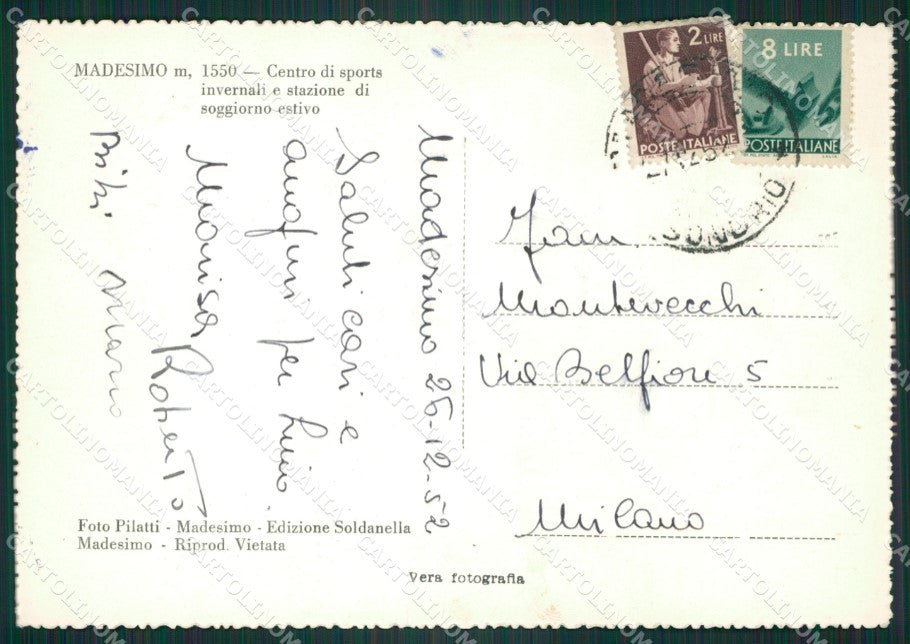 MADESIMO m, 1550 — Centro di sports
invernali e stazione di
soggiorno estivo
2 LIRE
POSTE ITALIANE
8 LIRE
POSTE ITALIANE
SONDRIO
Madesimo 26-12-52
Saluti cari e
auguri per
Marisa
Roberto
Fam.
Montevecchi
Via Belfiore 5
Milano
Foto Pilatti - Madesimo - Edizione Soldanella
Madesimo - Riprod. Vietata
Vera fotografia
CARTOLINOMANIA